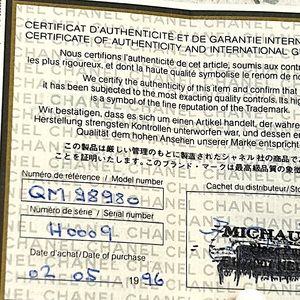 CERTIFICAT D'AUTHENTICITÉ ET DE GARANTIE INTERN
CERTIFICATE OF AUTHENTICITY AND INTERNATIONAL G
Nous certifions l'authenticité de cet article, soumis aux contrô
les plus rigoureux, et dont la haute qualité symbolise le renom de n
We certify the authenticity of this item and confirm that
it has been subjected to the most exacting quality controls. Its hi
is a symbol of the fine reputation of the Trademark.
Wir bestätigen, dass es sich um einen Artikel handelt, der wahre
Herstellung strengsten Kontrollen unterworfen war, und dessen
Qualität dem hohen Ansehen unserer Marke entspricht.
この製品は厳しい管理のもとに製造されたシャネル社の商品で
ことを証明いたします。このブランド・マークは最高級品質の象徴
Numéro de référence / Model number
QM 98980
Cachet du distributeur/Sto
Numéro de série / Serial number
H0009
MICHAU
Date d'achat/Date of purchase
02 05 1996